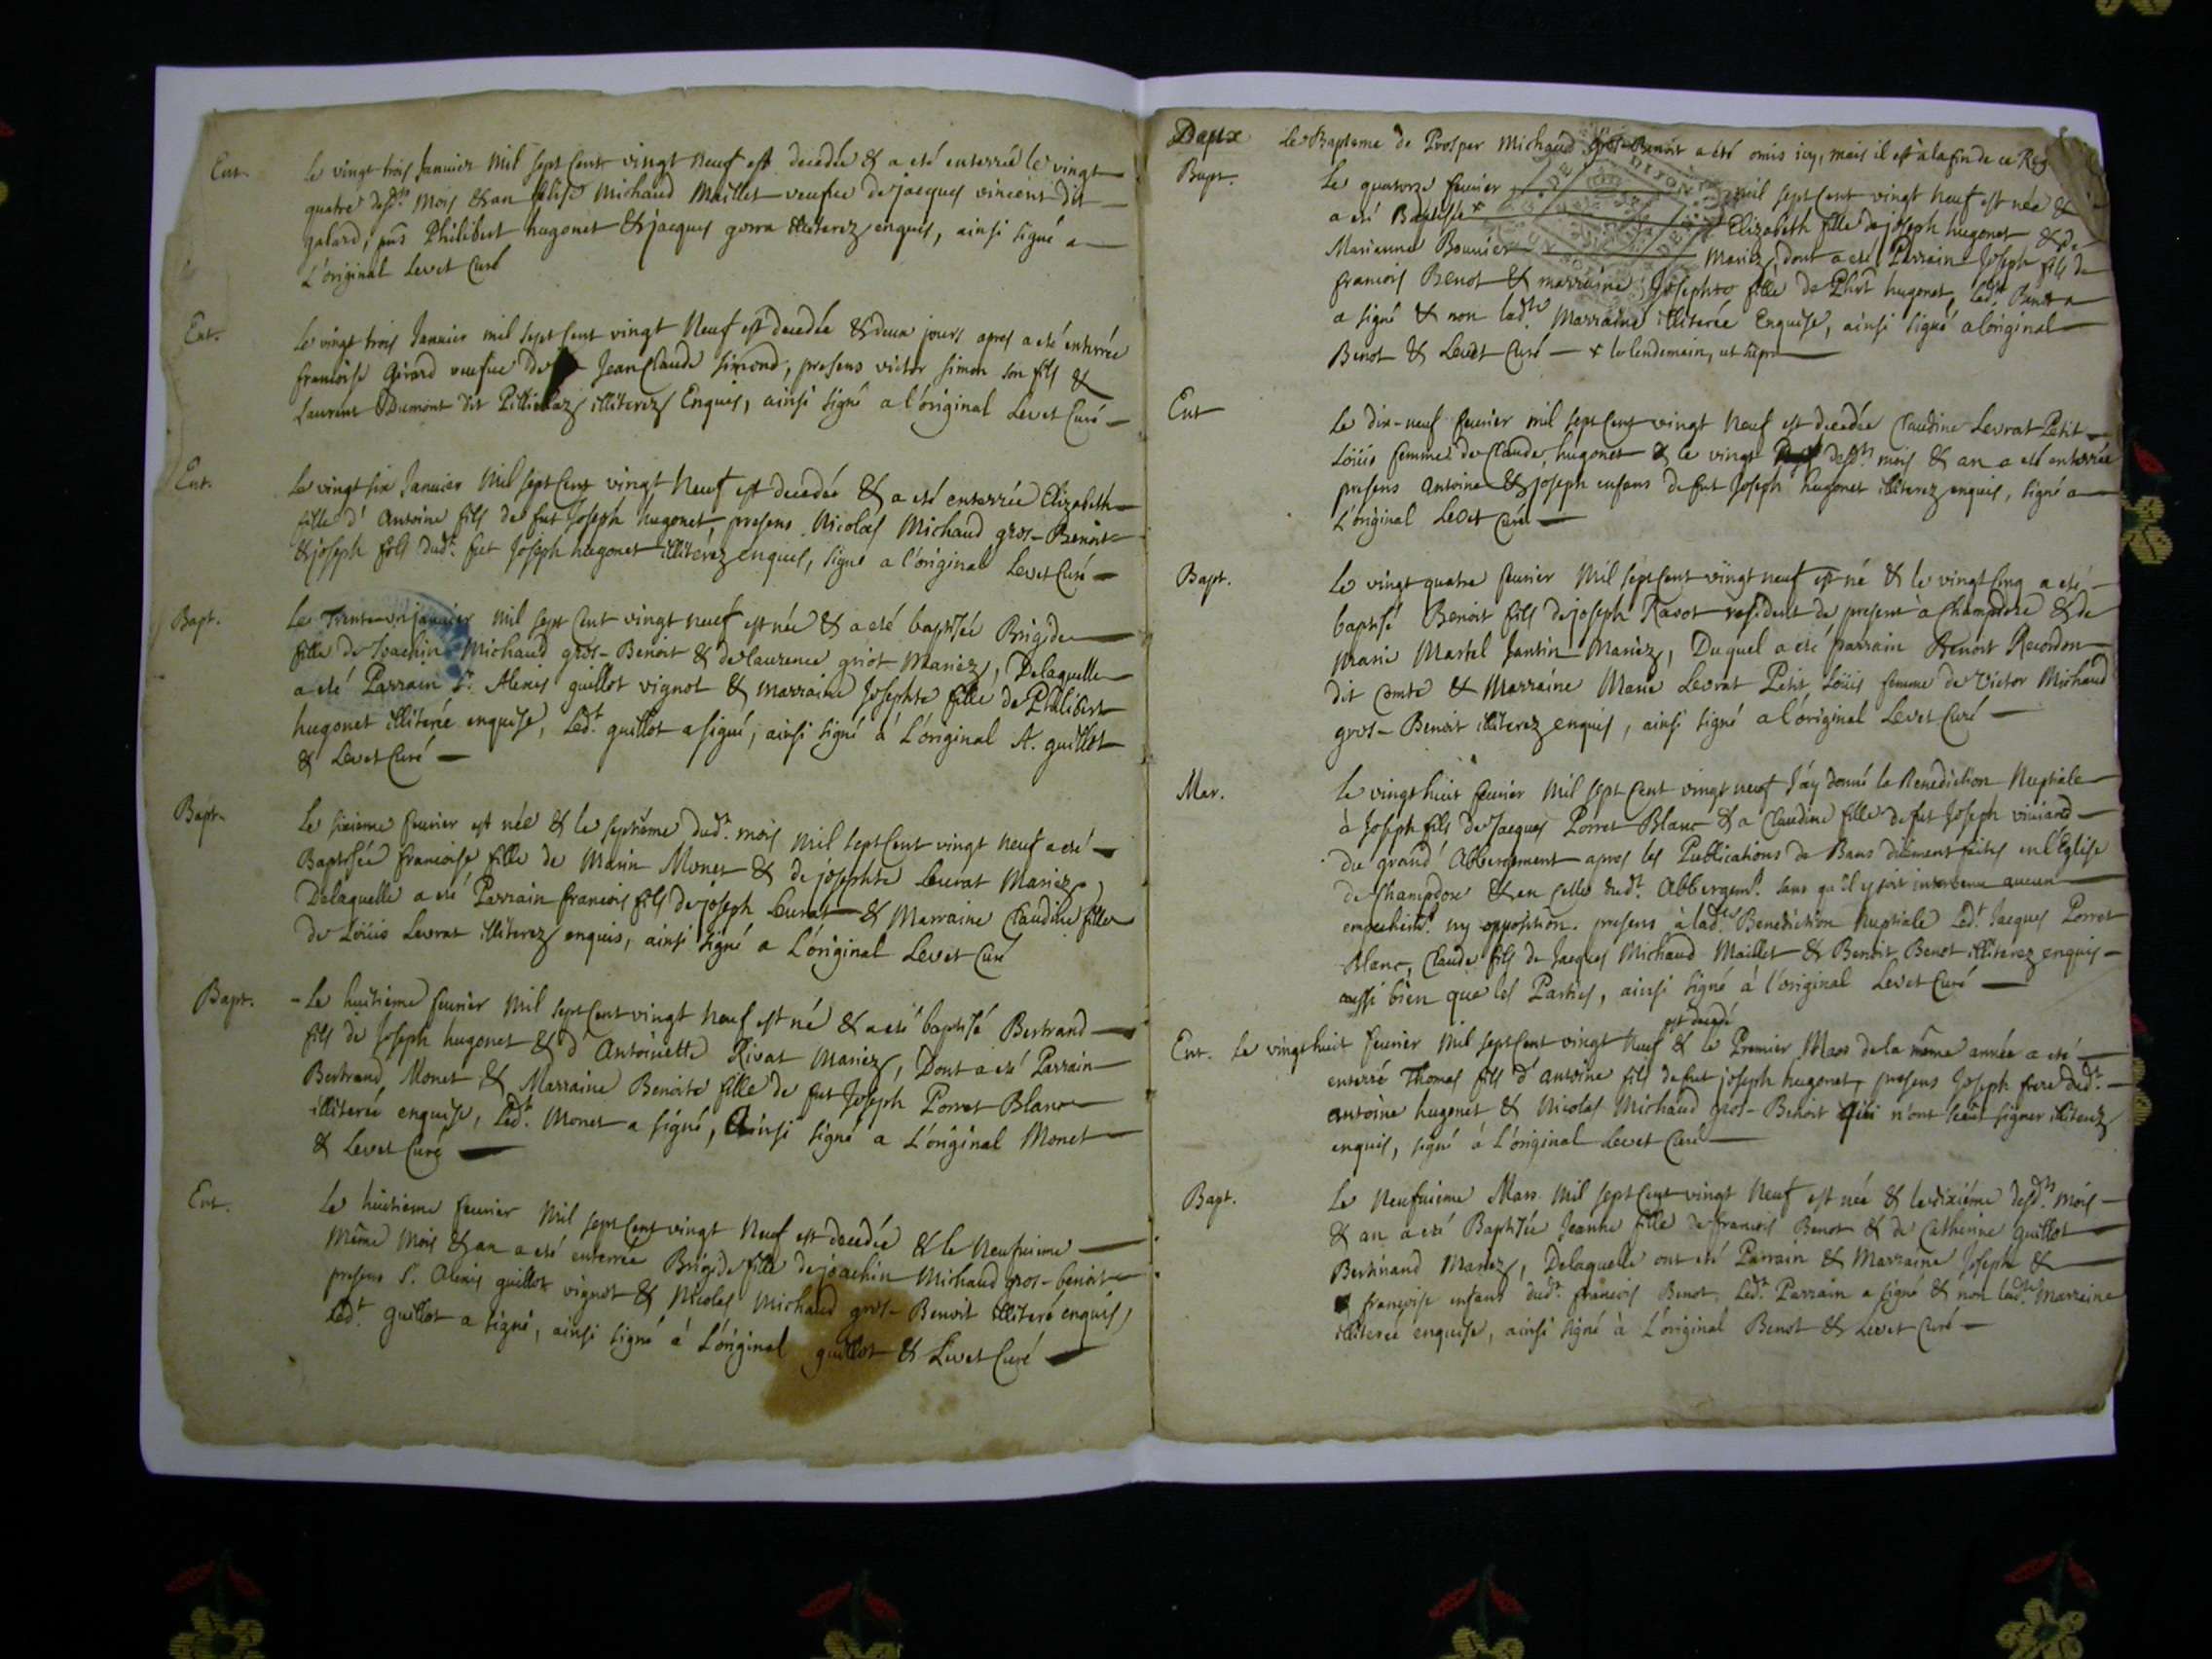 Ent. Le vingt trois Januier mil sept Cent vingt neuf est decedée & a eté enterrée le vingt
quatre desd.ts mois & an Elise Michaud Maillet veufue de jacques vincent dit
galard, pns Philibert hugonet & jacques gorra illiterez enquis, ainsi signé a
L'original Levet Curé
Ent. Le vingt trois Januier mil sept Cent vingt Neuf est decedée & deux jours apres a eté enterrée
francoise Girard veufue de Jean Claude Simond, presens victor simon son fils &
Laurent Dumont dit illiterez Enquis, ainsi signé a l'original Levet Curé
Ent. Le vingt six Januier Mil sept Cent vingt Neuf est decedée & a eté enterrée Elizabeth
fille d'Antoine fils de fut Joseph hugonet presens Nicolas Michaud gros-Benoit
& joseph fils dud.t fut Joseph hugonet illiterez enquis, signé a l'original Levet Curé
Bapt. Le Trente un januier mil sept Cent vingt neuf est née & a eté baptisée Brigide
fille de Joachin Michaud gros-Benoit & de laurence griot Mariez, Delaquelle
a eté Parrain S.r Alexis guillot vignot & marraine Josephte fille de Philibert
hugonet illiterée enquise, Led.t guillot a signé, ainsi signé à L'original A. guillot
& Levet Curé
Bapt. Le sixieme feurier est née & le septième dud.t mois mil sept Cent vingt neuf a eté
Baptisée francoise fille de Marin Monet & de josephte Leurat Mariez,
Delaquelle a eté Parrain francois fils de joseph Leurat & Marraine Claudine fille
de Loüis Levrat illiterez enquis, ainsi signé a L'original Levet Curé
Bapt. Le huitieme feurier mil sept Cent vingt neuf est né & a eté baptisé Bertrand
fils de Joseph hugonet & d'Antoinette Rivat Mariez, Dont a eté Parrain
Bertrand Monet & Marraine Benoite fille de fut Joseph Porret Blanc
illiterée enquise, Led.t Monet a signé, Ainsi signé a L'original Monet
& Levet Curé
Ent. Le huitieme feurier Mil sept Cent vingt Neuf est decedée & le Neufuieme
Même Mois & an a eté enterrée Brigide fille de joachin Michaud gros-benoit
presens S.r Alexis guillot vignot & Nicolas Michaud gros-Benoit illiteré enquis,
Led.t guillot a signé, ainsi signé à L'original guillot & Levet Curé
Bapt. Le Bapteme de Prosper Michaud gros-Benoit a été omis icy, mais il est à la fin de ce Reg
Bapt. Le quatorze feurier mil sept Cent vingt neuf est née &
a eté Baptisée + Elizabeth fille de joseph hugonet & de
Marianne Mariez, dont a eté Parrain Joseph fils de
francois Benot & marraine Josephte fille de Phrt hugonet, Led.t Benot
a signé & non lad.te Marraine illiterée Enquise, ainsi signé a loriginal
Benot & Levet Curé + le lendemain, ut supra
Ent Le dix-neuf feurier mil sept Cent vingt neuf est decedée Claudine Levrat Petit
Loüis femme de Claude hugonet & le vingt desd.ts mois & an a eté enterrée
presens antoine & joseph enfans de fut Joseph hugonet illiterez enquis, signé a
L'original Levet Curé
Bapt. Le vingt quatre feurier Mil sept Cent vingt neuf est né & le vingt Cinq a eté
baptisé Benoit fils de joseph Ravot resident de present à Champdore & de
Marie Martel Jantin Mariez, Duquel a eté parrain Benoit Recordon
dit Comte & Marraine Marie Levrat Petit Loüis femme de Victor Michaud
gros-Benoit illiterez enquis, ainsi signé a l'original Levet Curé
Mar. Le vingt huit feurier Mil sept Cent vingt neuf J'ay donné la Benediction Nuptiale
à Joseph fils de Jacques Porret Blanc & a Claudine fille de fut Joseph viviand
du grand Abbergement apres les Publications de Bans düement faites en l'Eglise
de Champdore & en Celle dud.t Abbergem.t sans qu'il y soit intervenu aucun
empechem.t ny opposition. presens à lad.te Benediction Nuptiale Led.t Jacques Porret
Blanc, Claude fils de Jacques Michaud Maillet & Benoit Benot illiterez enquis
aussi bien que les Parties, ainsi signé à l'original Levet Curé
Ent. Le vingt huit feurier Mil sept Cent vingt Neuf est decedé & le Premier Mars de la même année a eté
enterré Thomas fils d'antoine fils de fut joseph hugonet, presens Joseph frere dud.t
antoine hugonet & Nicolas Michaud gros-Benoit Qui n'ont sceu signer illiterez
enquis, signé à L'original Levet Curé
Bapt. Le Neufuieme Mars Mil sept Cent vingt Neuf est née & le dixiéme desd.ts mois
& an a eté Baptisée Jeanne fille de francois Benot & de Catherine guillot
Bertinand Mariez, Delaquelle ont eté Parrain & Marraine Joseph &
françoise enfans dud.t francois Benot, Led.t Parrain a signé & non lad.te Marraine
illiterée enquise, ainsi signé à L'original Benot & Levet Curé